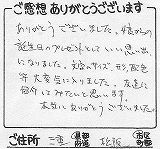 ご感想ありがとうございます
ありがとうございました。娘からの
誕生日のプレゼントとして いい思い出
になりました。文字のサイズ、形、配色
等 大変気に入りました。友達に
紹介してみたいと思います
本当にありがとうございました
ご住所 三重 都道府県 松阪 市区町村